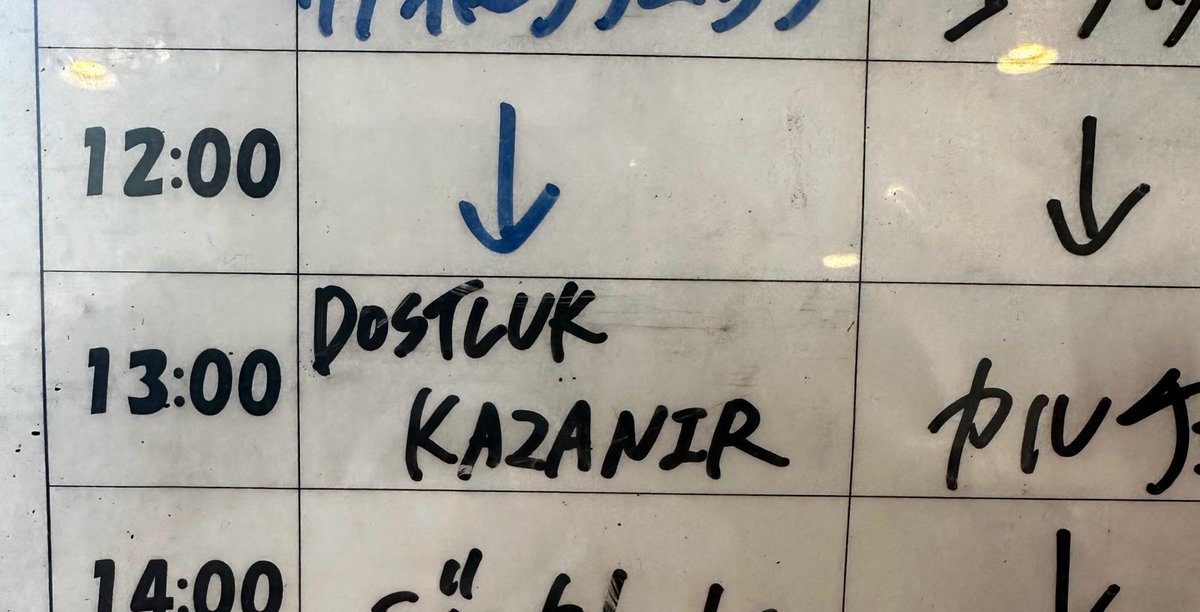 12:00
↓
↓
13:00
DOSTLUK
KAZANIR
カルチ
14:00